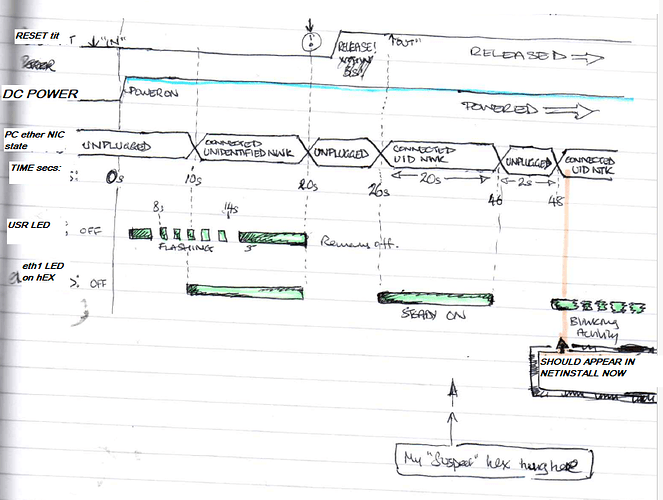 RESET tit T "IN" RELEASE! "OUT" RELEASED
DC POWER POWER ON POWERED
PC ether NIC
state UNPLUGGED CONNECTED UNIDENTIFIED NWK UNPLUGGED CONNECTED UID NWK UNPLUGGED CONNECTED UID NTK
TIME secs: 0s 10s 20s 26s 20s 46 2s 48
8s 14s
USR LED ; OFF FLASHING Remains off.
eth1 LED
on hEX OFF
STEADY ON Blinking
Activity
SHOULD APPEAR IN
NETINSTALL NOW
My "Suspect" hex hung here